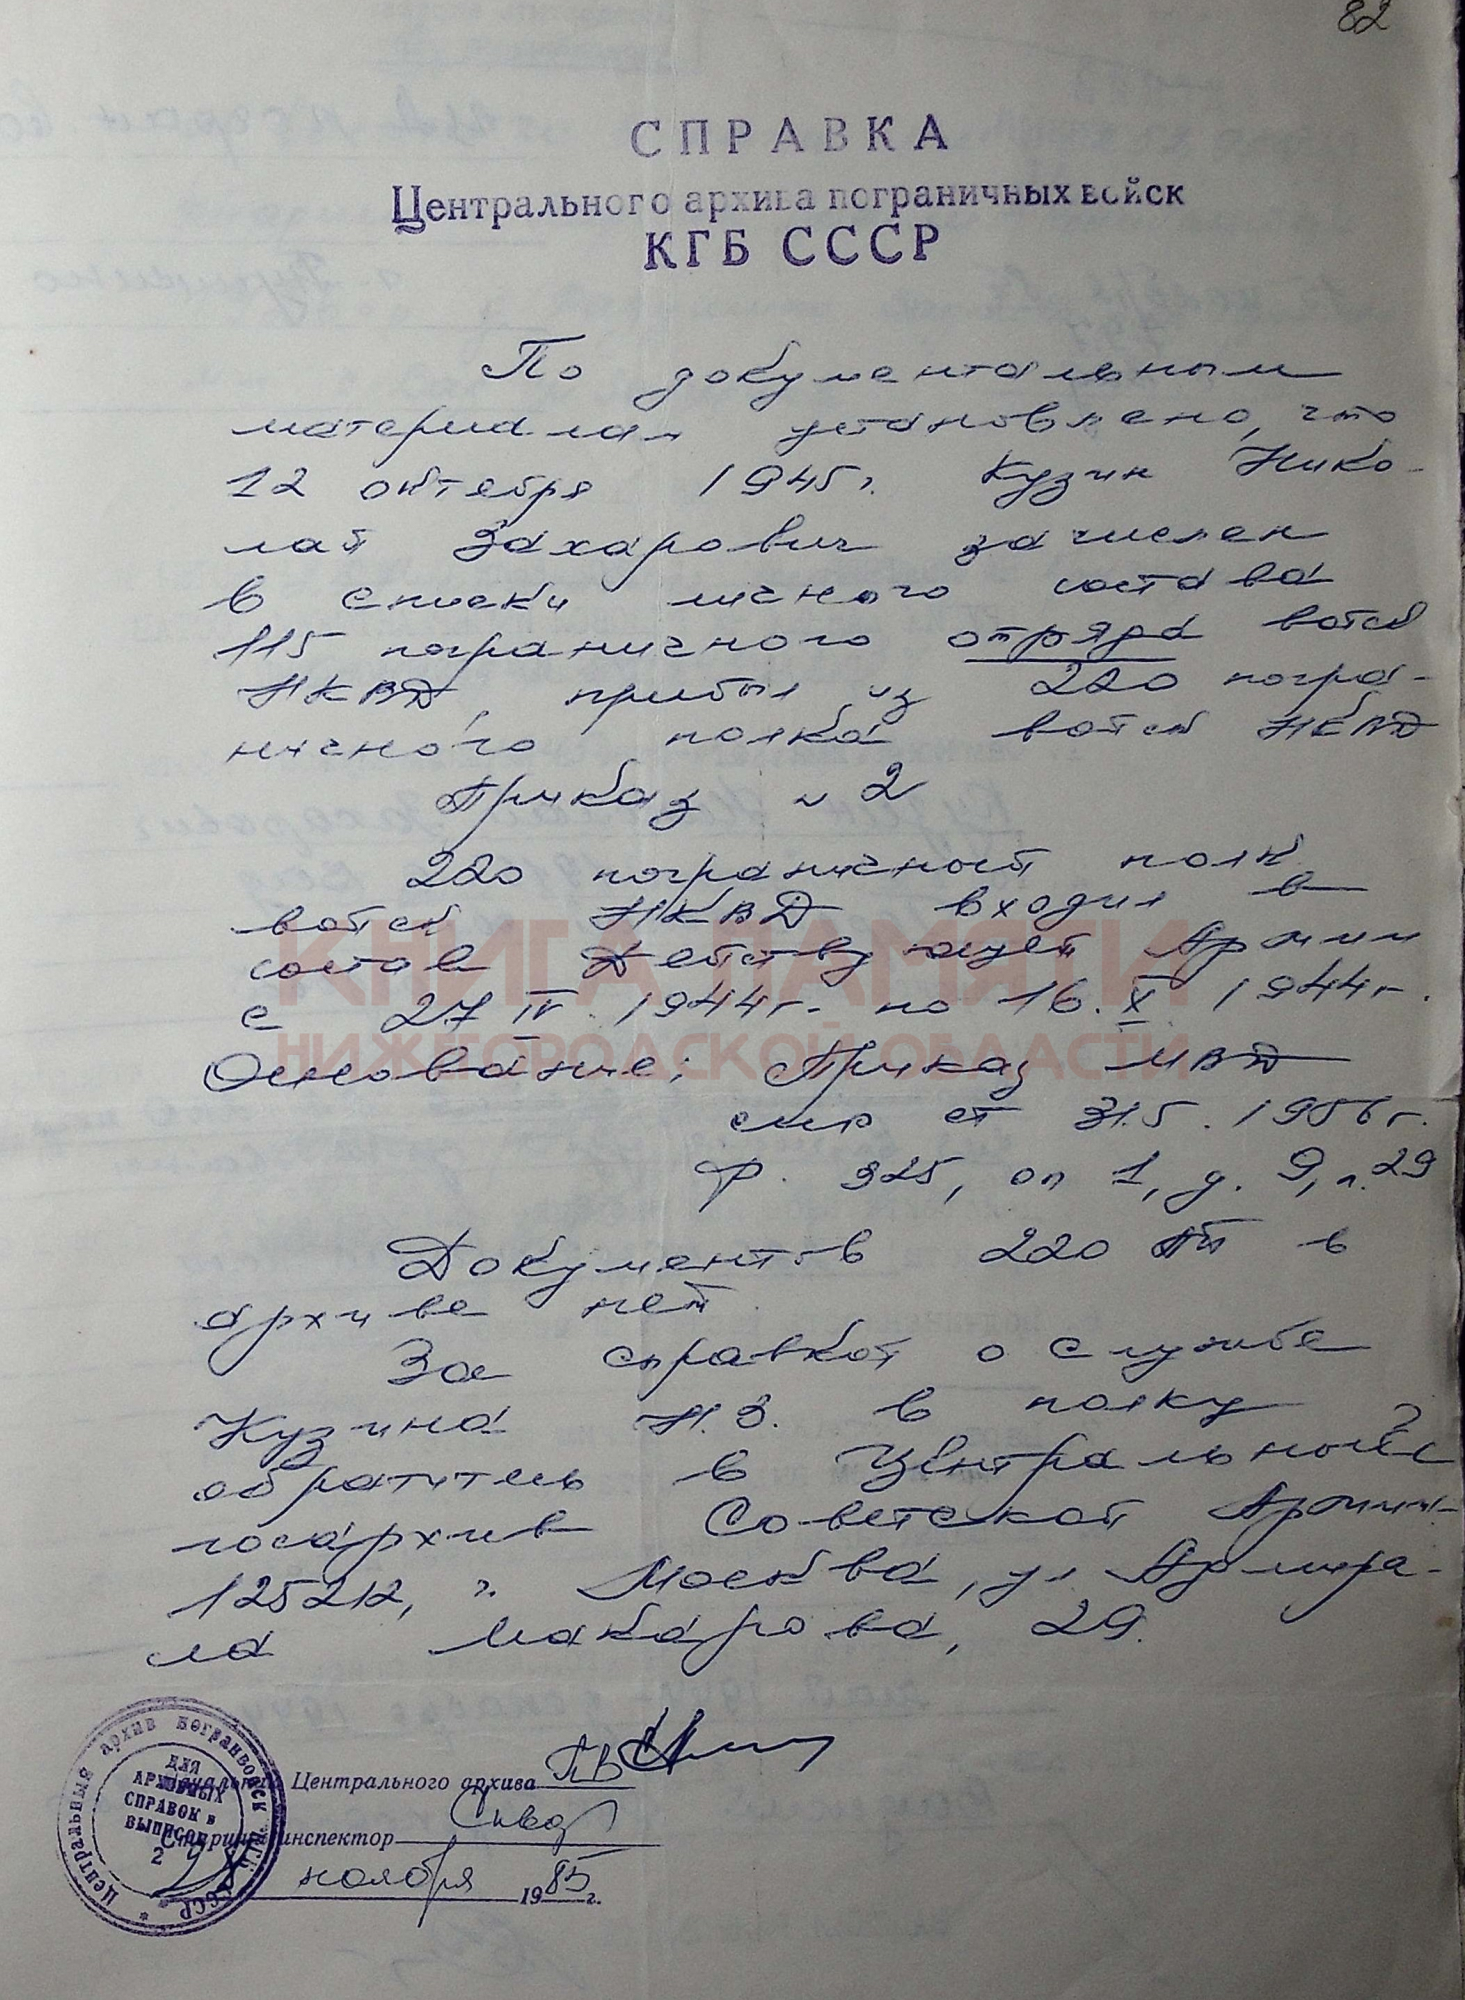 82
СПРАВКА
Центрального архива пограничных войск
КГБ СССР
По документальным
материалам установлено, что
12 октября 1945г. Кузин Нико-
лай Захарович зачислен
в списки личного состава
115 пограничного отряда войск
НКВД, прибыл из 220 погра-
ничного полка войск НКВД
Приказ № 2
220 пограничной полк
войск НКВД входил в
состав Действующей Армии
с 27 IV 1944г. по 16.X 1944г.
КНИГА ПАМЯТИ
НИЖЕГОРОДСКОЙ ОБЛАСТИ
Основание: Приказ МВД
СССР от 31.5.1956г.
ф. 325, оп 1, д. 9, л. 29
Документов 220 ПП в
архиве нет.
За справкой о службе
Кузина Н.З. в полку
обратитесь в Центральный
госархив Советской Армии
125212, г. Москва, ул Адмира-
ла Макарова, 29.
Начальник Центрального архива ПВ
Старший инспектор
28 ноября 1985 г.
Центральный архив Погранвойск КГБ СССР
ДЛЯ
АРХИВНЫХ
СПРАВОК и
ВЫПИСОК
2